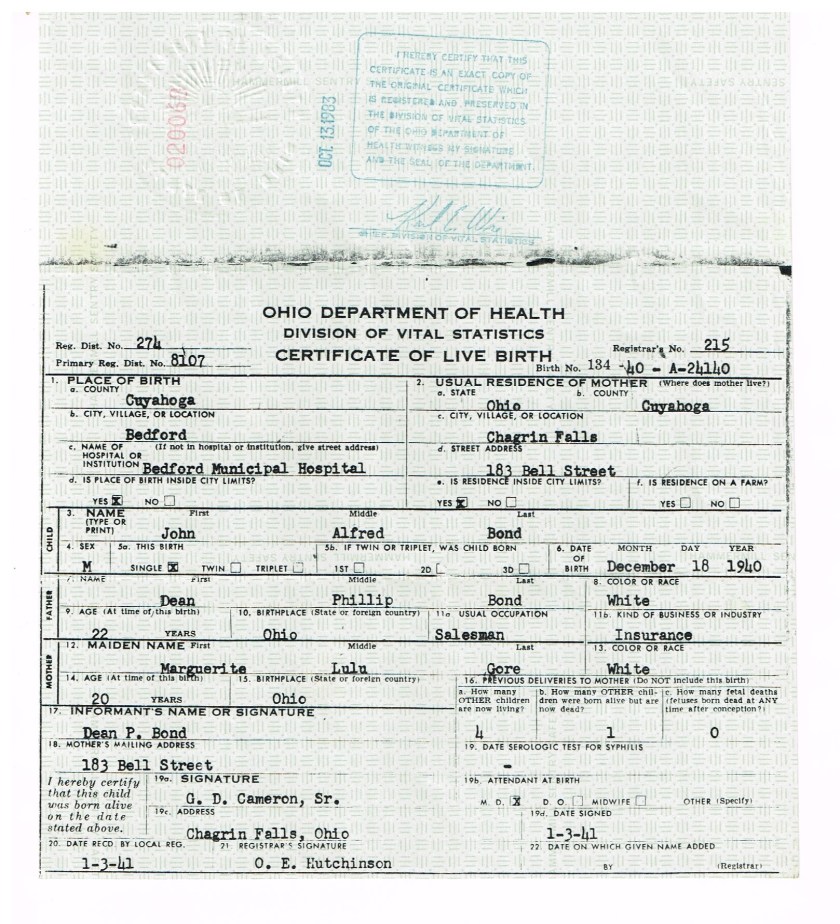 HAMMERMILL SENTRY
SENTRY SAFETY
OCT. 13.1983
I HEREBY CERTIFY THAT THIS
CERTIFICATE IS AN EXACT COPY OF
THE ORIGINAL CERTIFICATE WHICH
IS REGISTERED AND PRESERVED IN
THE DIVISION OF VITAL STATISTICS
OF THE OHIO DEPARTMENT OF
HEALTH WITNESS MY SIGNATURE
AND THE SEAL OF THE DEPARTMENT.
CHIEF, DIVISION OF VITAL STATISTICS
OHIO DEPARTMENT OF HEALTH
DIVISION OF VITAL STATISTICS
CERTIFICATE OF LIVE BIRTH
Reg. Dist. No. 274
Registrar's No. 215
Primary Reg. Dist. No. 8107
Birth No. 134 -40 - A-24140
1. PLACE OF BIRTH
a. COUNTY
Cuyahoga
2. USUAL RESIDENCE OF MOTHER (Where does mother live?)
a. STATE b. COUNTY
Ohio Cuyahoga
b. CITY, VILLAGE, OR LOCATION
Bedford
c. CITY, VILLAGE, OR LOCATION
Chagrin Falls
c. NAME OF (If not in hospital or institution, give street address)
HOSPITAL OR
INSTITUTION Bedford Municipal Hospital
d. STREET ADDRESS
183 Bell Street
d. IS PLACE OF BIRTH INSIDE CITY LIMITS?
YES X NO
e. IS RESIDENCE INSIDE CITY LIMITS?
YES X NO
f. IS RESIDENCE ON A FARM?
YES NO
CHILD
3. NAME First Middle Last
(TYPE OR
PRINT) John Alfred Bond
4. SEX 5a. THIS BIRTH 5b. IF TWIN OR TRIPLET, WAS CHILD BORN 6. DATE MONTH DAY YEAR
OF
M SINGLE X TWIN TRIPLET 1ST 2D 3D BIRTH December 18 1940
FATHER
7. NAME First Middle Last 8. COLOR OR RACE
Dean Phillip Bond White
9. AGE (At time of this birth) 10. BIRTHPLACE (State or foreign country) 11a USUAL OCCUPATION 11b. KIND OF BUSINESS OR INDUSTRY
22 YEARS Ohio Salesman Insurance
MOTHER
12. MAIDEN NAME First Middle Last 13. COLOR OR RACE
Marguerite Lulu Gore White
14. AGE (At time of this birth) 15. BIRTHPLACE (State or foreign country)
20 YEARS Ohio
16. PREVIOUS DELIVERIES TO MOTHER (Do NOT include this birth)
a. How many
OTHER children
are now living?
4
b. How many OTHER chil-
dren were born alive but are
now dead?
1
c. How many fetal deaths
(fetuses born dead at ANY
time after conception?)
0
17. INFORMANT'S NAME OR SIGNATURE
Dean P. Bond
18. MOTHER'S MAILING ADDRESS
183 Bell Street
19. DATE SEROLOGIC TEST FOR SYPHILIS
-
I hereby certify
that this child
was born alive
on the date
stated above.
19a. SIGNATURE
G. D. Cameron, Sr.
19b. ATTENDANT AT BIRTH
M. D. X D. O. MIDWIFE OTHER (Specify)
19c. ADDRESS
Chagrin Falls, Ohio
19d. DATE SIGNED
1-3-41
20. DATE RECD. BY LOCAL REG. 21. REGISTRAR'S SIGNATURE 22. DATE ON WHICH GIVEN NAME ADDED
1-3-41 O. E. Hutchinson
BY (Registrar)